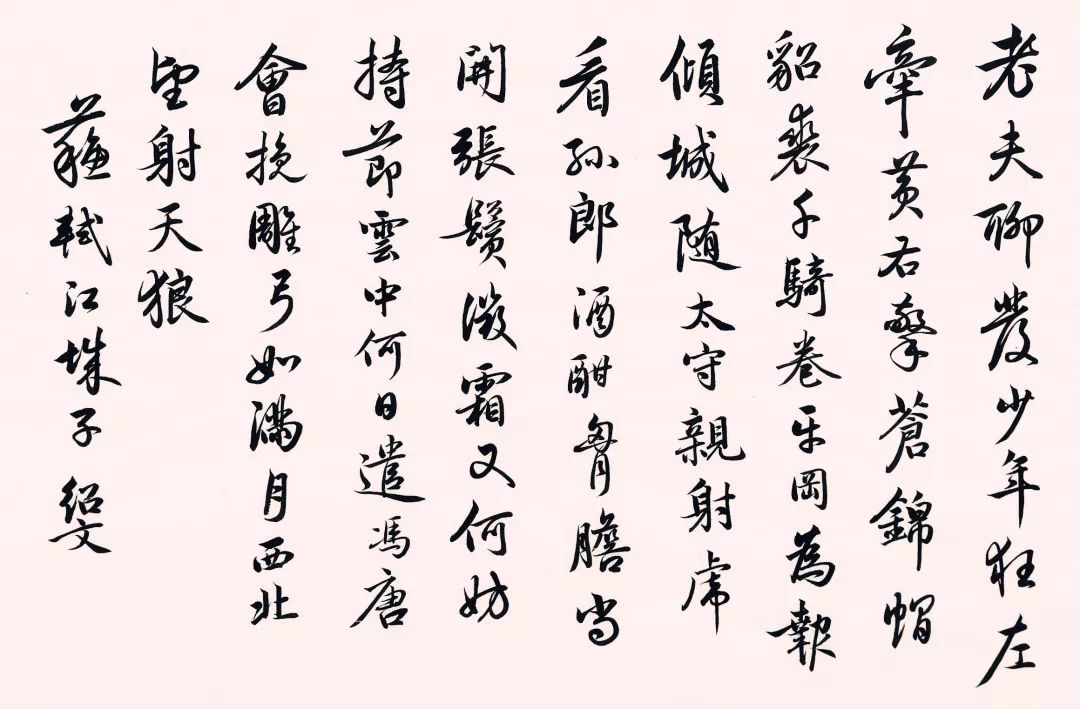 老夫聊發少年狂左
牽黃右擎蒼錦帽
貂裘千騎卷平岡為報
傾城随太守親射虎
看孫郎酒酣胷膽尚
開張鬢微霜又何妨
持節雲中何日遣馮唐
會挽雕弓如滿月西北
望射天狼
蘇軾江城子 紹文